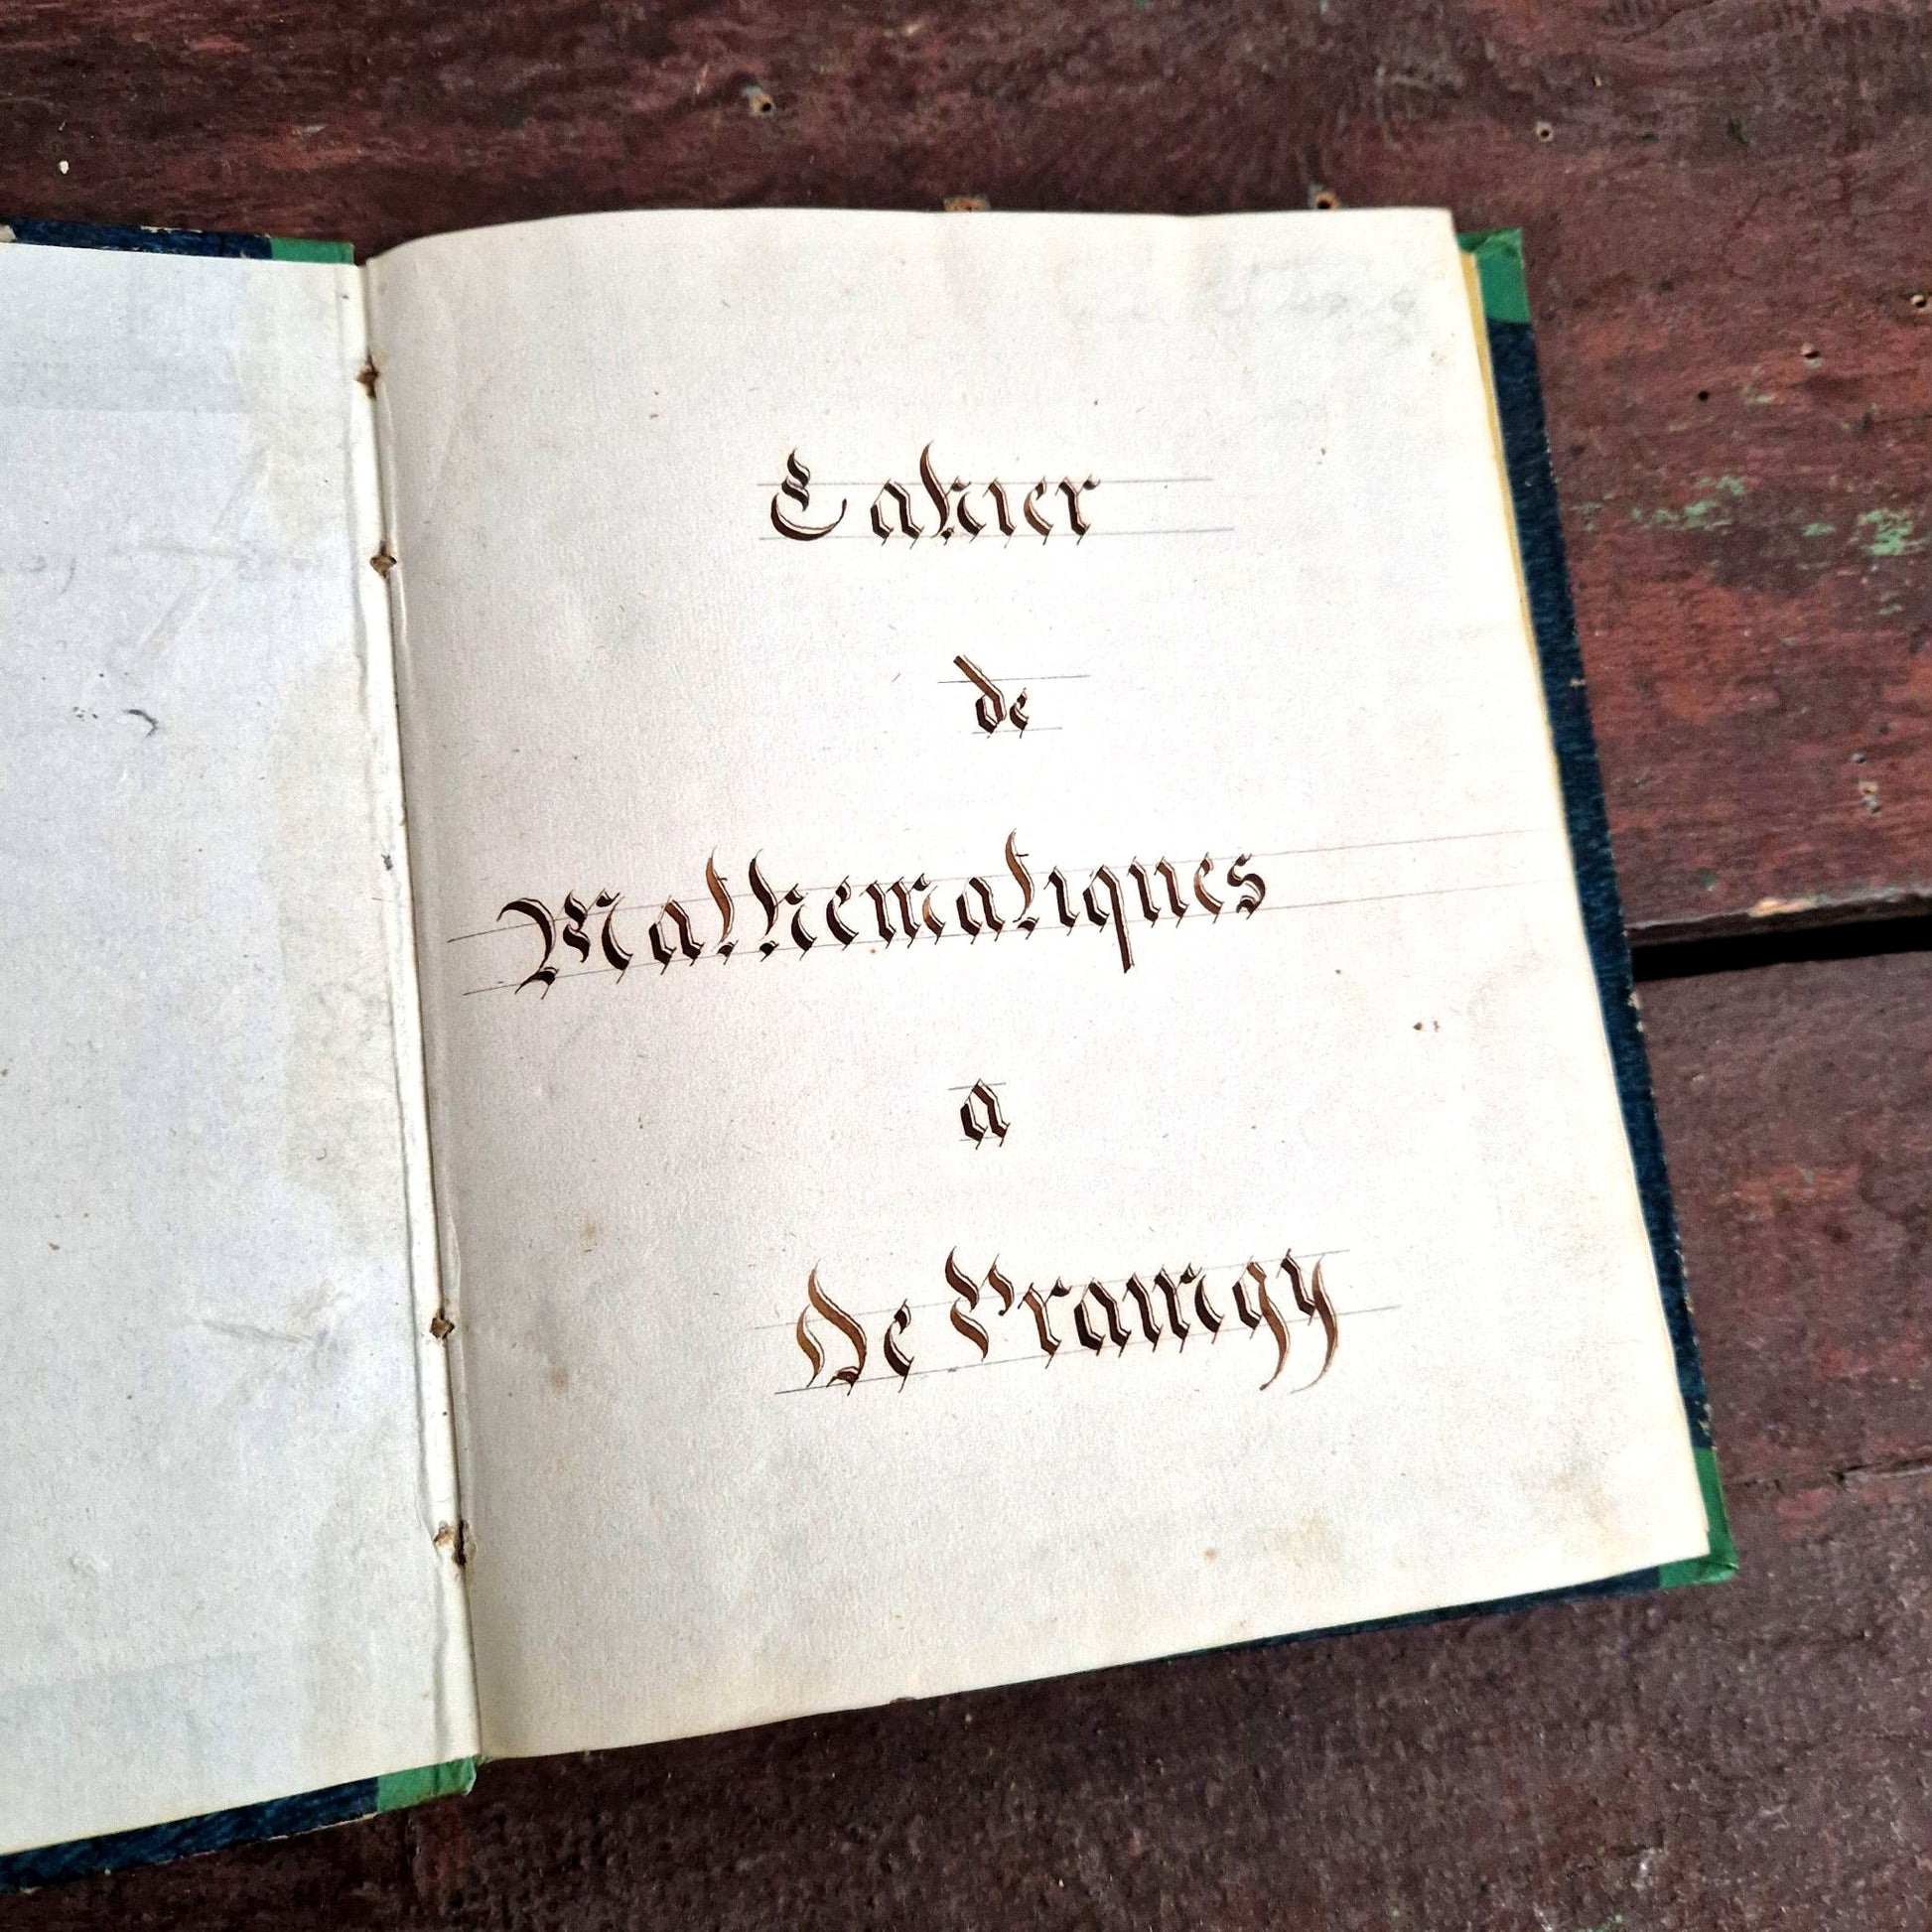 Cahier
de
Mathematiques
a
De